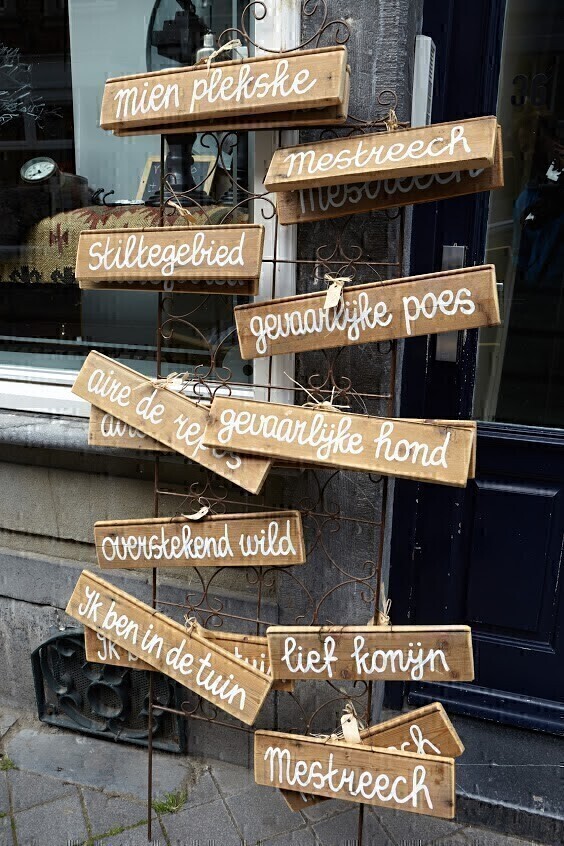 mien plekske
Mestreech
Mestreech
Stiltegebied
gevaarlijke poes
aire de repos
aire
gevaarlijke hond
overstekend wild
Ik ben in de tuin
Ik
tuin
lief konijn
Mestreech